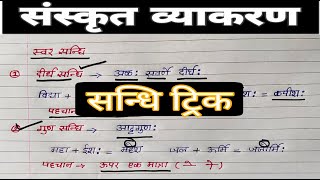 संस्कृत व्याकरण
स्वर सन्धि
① दीर्घ सन्धि → अकः सवर्णे दीर्घः
विद्या + = कपीशः
पहचान
सन्धि ट्रिक
② गुण सन्धि → आद्गुणः
महा + ईशः = महेशः जल + ऊर्मि = जलोर्मिः
पहचान → ऊपर एक मात्रा ( े ो )